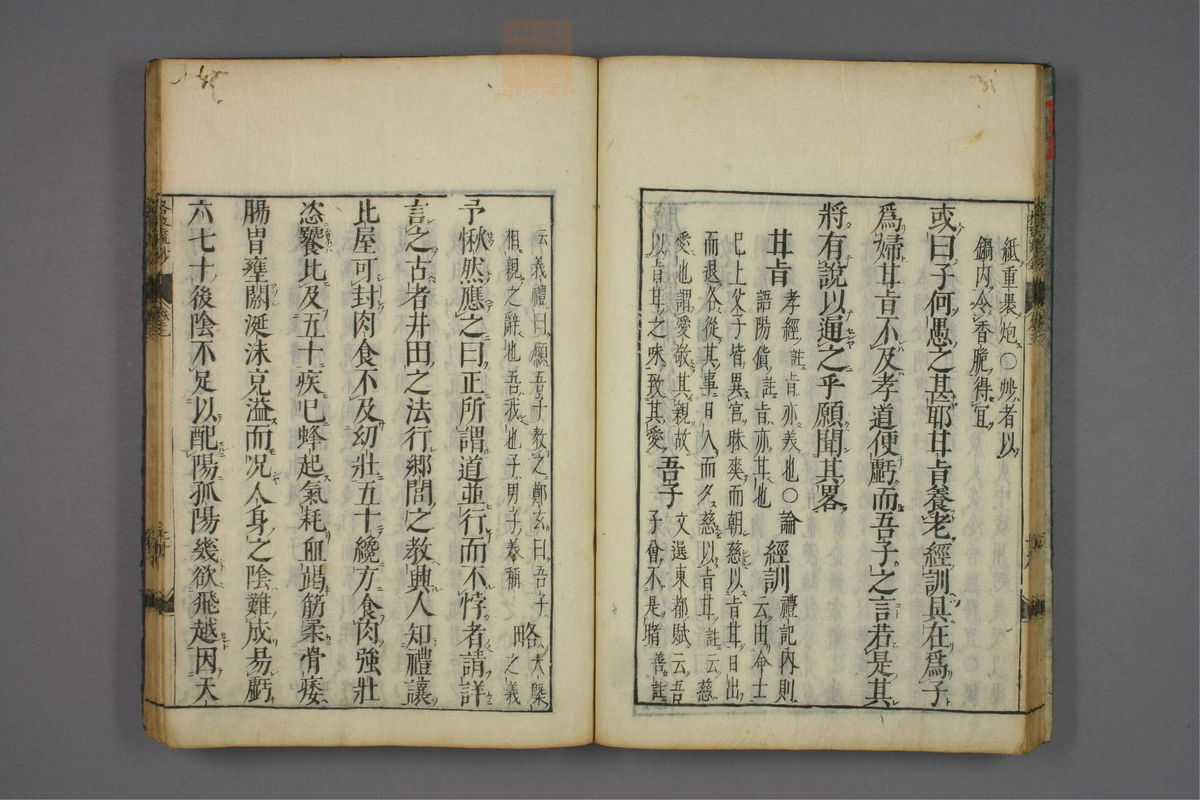 紙重褁炮〇炒者以
鍋内令香脆得宜
或曰子何愚之甚耶甘㫖養老經訓具在爲子
爲婦甘㫖不及孝道便虧而吾子之言若是其
將有說以逼之乎願聞其畧
甘㫖 孝經註㫖亦美也〇論
語陽貨註㫖亦甘也 經訓 禮記内則
云由命士
巳上父子皆異宮昧爽而朝慈以㫖甘日出
而退各從其事日入而夕慈以㫖甘註云慈
愛也謂愛敬其親故
以㫖甘之味致其愛 吾子 文選東都賦云吾
子會不是睹善註
云義禮曰願吾子教之鄭玄曰吾子
相親之辭也吾我也子男子羙稱 略 大槩
之義
予愀然應之曰正所謂道並行而不悖者請詳
言之古者井田之法行鄉閭之教興人知禮讓
比屋可封肉食不及幼壯五十纔方食肉強壯
恣饕比及五十疾巳蜂起氣耗血竭筋柔骨痿
腸胃壅閼涎沫充溢而况人身之陰難成易虧
六七十後陰不足以配陽孤陽幾欲飛越因天